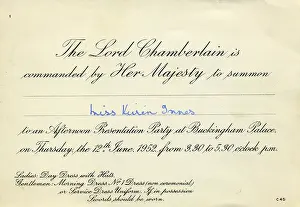 The Lord Chamberlain is
commanded by Her Majesty to summon
Miss Keren Innes
to an Afternoon Presentation Party at Buckingham Palace,
on Thursday, the 12th June, 1952, from 3.30 to 5.30 o'clock p.m.
Ladies: Day Dress with Hats.
Gentlemen: Morning Dress Nº 1 Dress (non ceremonial)
or Service Dress Uniform. If in possession
Swords should be worn.